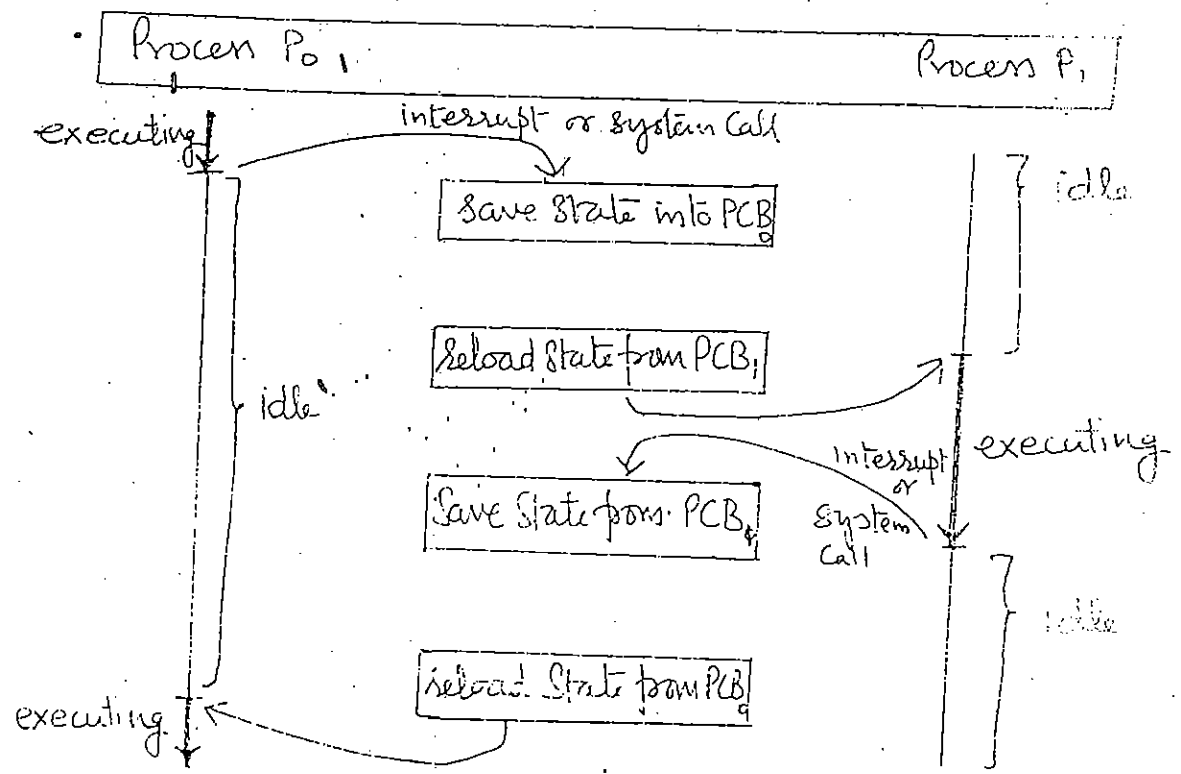 Process P0
Process P1
executing
interrupt or system Call
idle
Save State into PCB0
reload State from PCB1
idle
executing
interrupt
or
system
Call
Save State from PCB1
idle
reload State from PCB0
executing